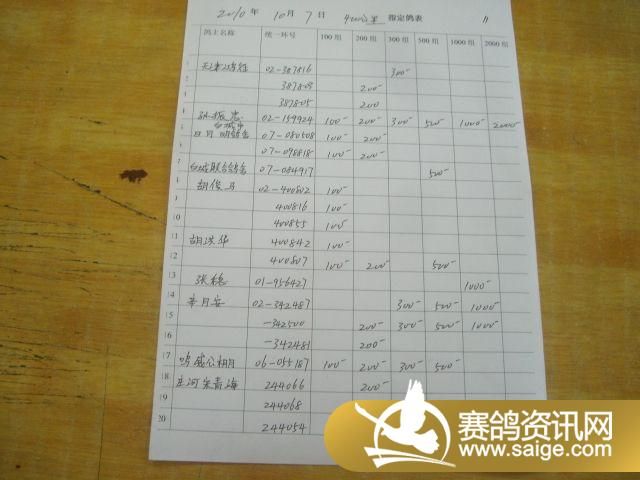 2010年 10月 7日 400公里 指定鸽表
鸽主名称 统一环号 100 组 200 组 300 组 500 组 1000 组 2000 组
02-387816 300-
387808 200-
387805 200
02-159924 100- 200- 300- 500- 1000- 2000-
07-080508 100- 200-
07-098818 100- 200-
白城联合鸽舍 07-084917 500-
胡俊马 02-400802 100-
400816 100-
10 400855 100-
11 胡洪华 400842 100-
12 400807 100- 200- 500-
13 张穗 01-956427 1000-
14 李月安 02-342487 300- 500- 1000-
15 -342500 200- 300- 500- 1000-
16 -342481 200-
17 鸣威公棚月 06-055187 100- 200- 300- 500-
18 庄河 244066 200-
19 244068
20 244054
赛鸽资讯网
www.saige.com